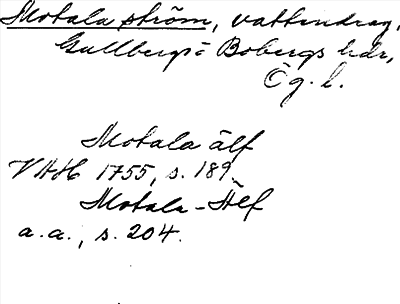 Motala ström, vattendrag,
Gullbergs o Bobergs hdr,
Ög. l.
Motala älf
VHH 1755, s. 189.
Motala-Älf
a.a., s. 204.